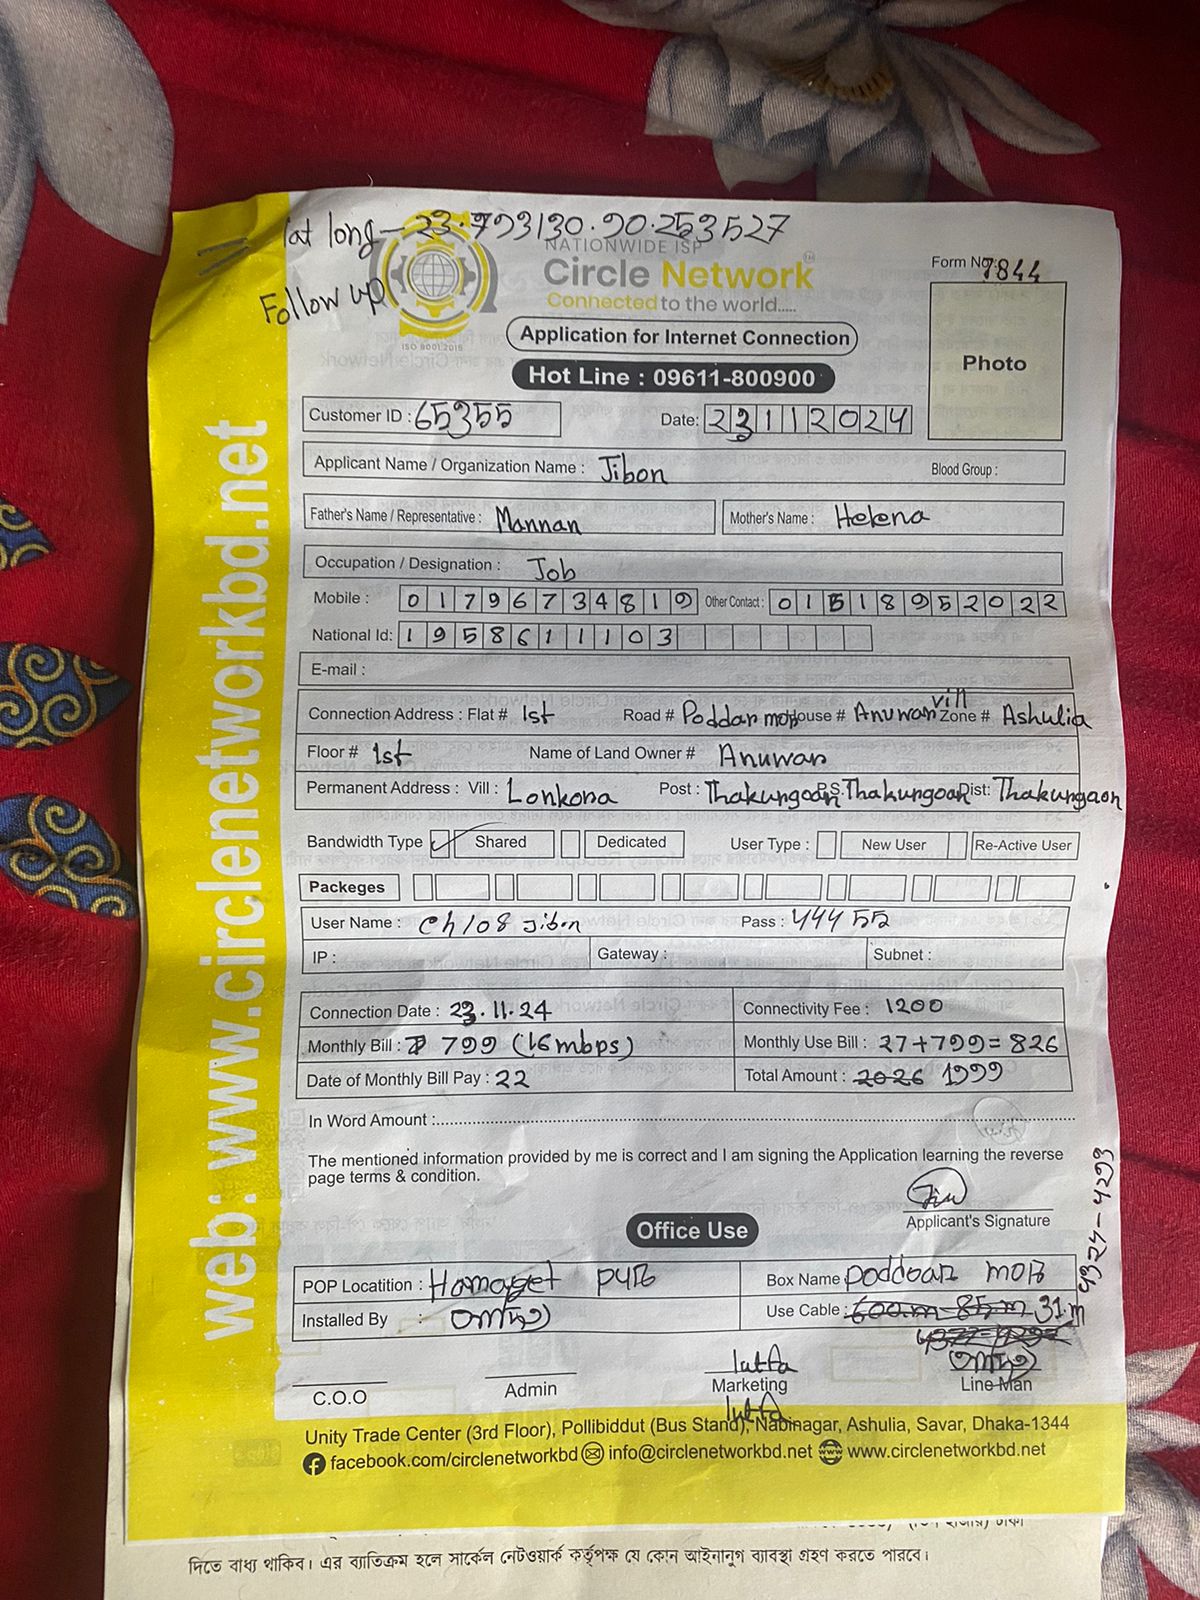 lat long - 23.793130.90.253527
Follow up
NATIONWIDE ISP
Circle Network
Connected to the world.....
ISO 9001:2015
Form No: 7844
Application for Internet Connection
Hot Line : 09611-800900
Photo
Customer ID : 65355
Date: 23112024
Applicant Name / Organization Name : Jibon
Blood Group :
Father's Name / Representative : Mannan
Mother's Name : Helena
Occupation / Designation : Job
Mobile : 01796734819 Other Contact : 01518952022
National Id: 1958611103
E-mail :
Connection Address : Flat # 1st Road # Poddar mor House # Anuwar vill Zone # Ashulia
Floor # 1st Name of Land Owner # Anuwar
Permanent Address : Vill : Lonkona Post : Thakungoan P.S: Thakungoan Dist: Thakungaon
Bandwidth Type Shared Dedicated User Type : New User Re-Active User
Packeges
User Name : Ch108 Jibon Pass : 444 55
IP : Gateway : Subnet :
Connection Date : 23.11.24
Connectivity Fee : 1200
Monthly Bill : 799 (16mbps)
Monthly Use Bill : 27+799=826
Date of Monthly Bill Pay : 22
Total Amount : 2026 1999
In Word Amount :
The mentioned information provided by me is correct and I am signing the Application learning the reverse
page terms & condition.
Applicant's Signature
Office Use
POP Locatition : Hamayet pur
Box Name poddoar mor
Installed By :
Use Cable : 600.m - 85.m 31.m
4324-4293
C.O.O
Admin
lutfa
Marketing
lutfa
Line Man
Unity Trade Center (3rd Floor), Pollibiddut (Bus Stand), Nabinagar, Ashulia, Savar, Dhaka-1344
facebook.com/circlenetworkbd info@circlenetworkbd.net www.circlenetworkbd.net
web: www.circlenetworkbd.net
দিতে বাধ্য থাকিব। এর ব্যতিক্রম হলে সার্কেল নেটওয়ার্ক কর্তৃপক্ষ যে কোন আইনানুগ ব্যাবস্থা গ্রহণ করতে পারবে।